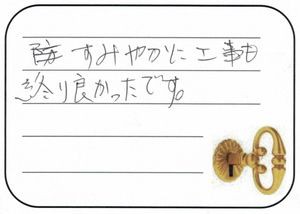 すみやかに工事も
終り良かったです。